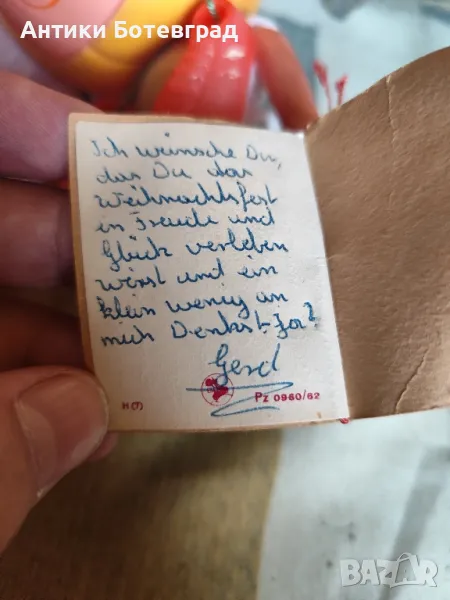 Антики Ботевград
Ich wünsche Dir,
das Du das
Weihnachtsfest
in Freude und
Glück verleben
wirst und ein
klein wenig an
mich Denkst. Ja?
Gerd
H(7) Pz 0960/62
BAZAR